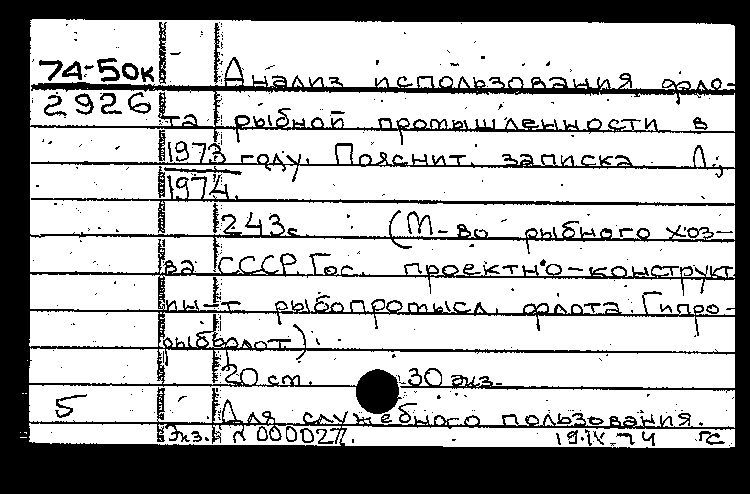 74-50к Анализ использования фло-
2926 та рыбной промышленности в
1973 году. Пояснит. записка Л.;
1974.
243с. (М-во рыбного хоз-
ва СССР. Гос. проектно-конструкт.
ин-т рыбопромысл. флота. Гипро-
рыбфлот).
20 см. 30 экз.
5 Для служебного пользования.
Экз. № 000027. 19.IV.74 ГС